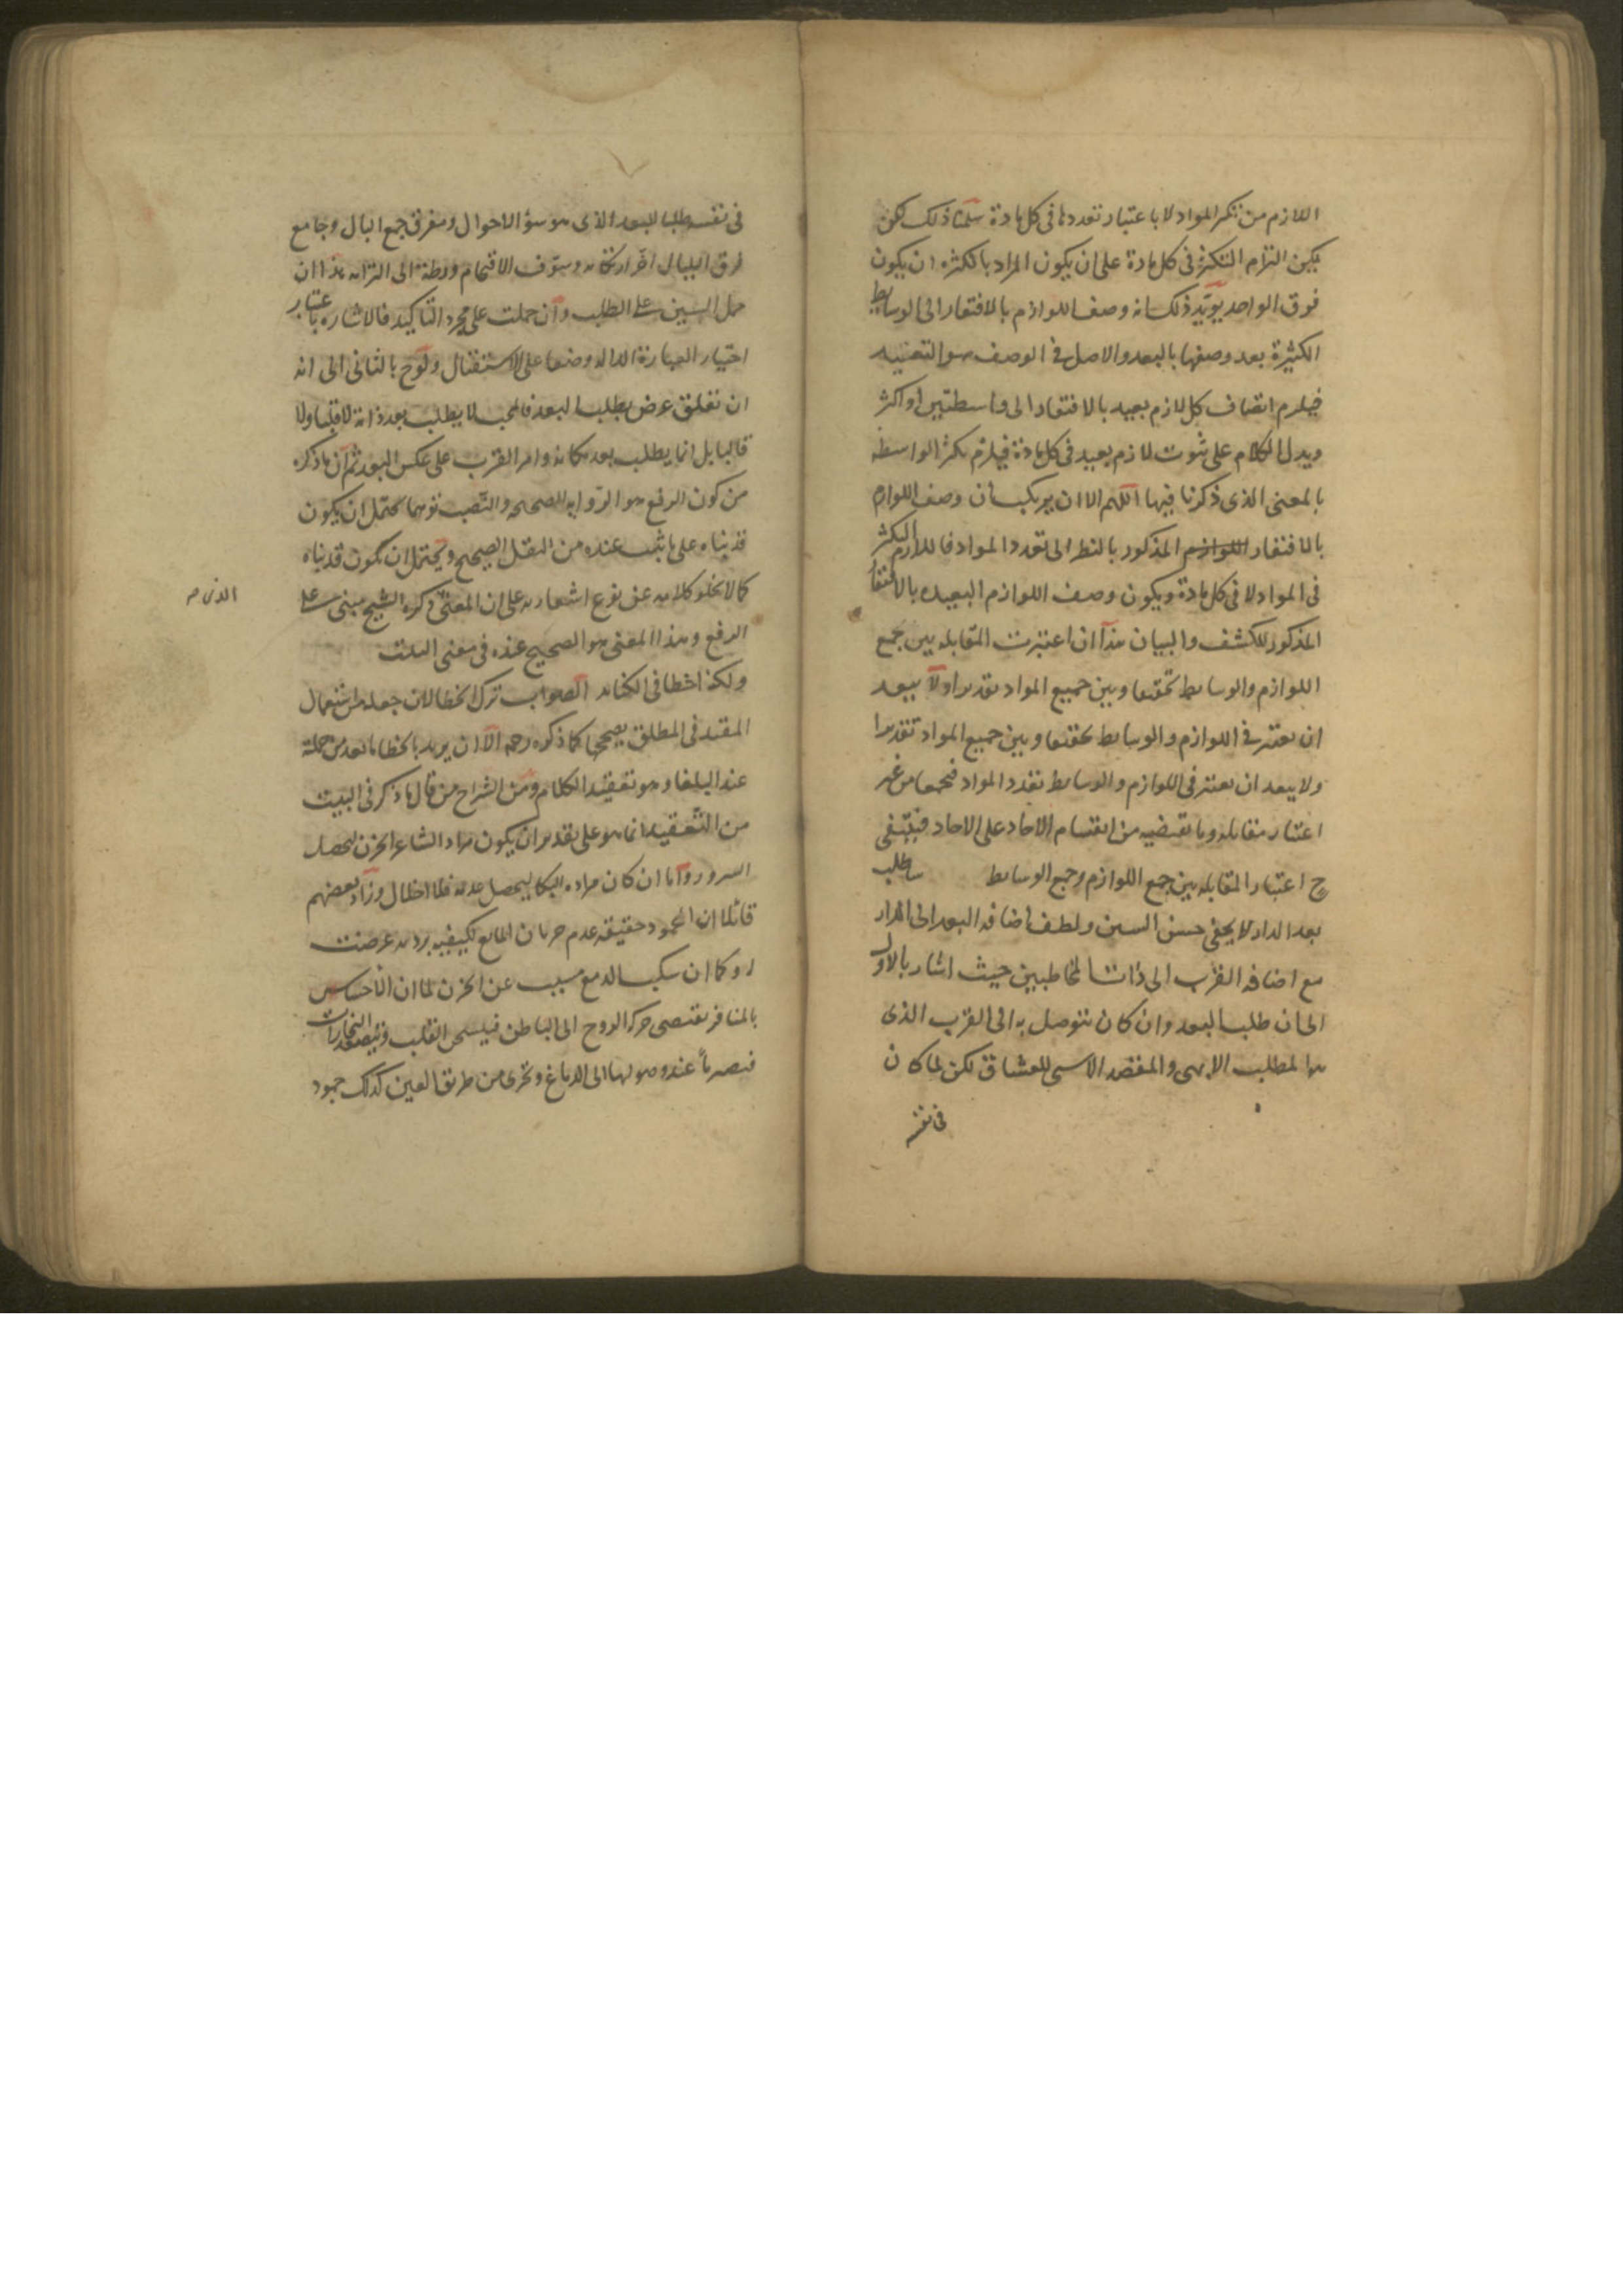 اللازم من تكثر المواد لا باعتبار تعددها فى كل مادة سلمنا ذلك لكن
يمكن التزام التكثر فى كل مادة على ان يكون المراد بالكثرة ان يكون
فوق الواحد يؤيد ذلك انه وصف اللوازم بالافتقار الى الوسايط
الكثيرة بعد وصفها بالبعد والاصل فى الوصف هو التقييد
فيلزم اتصاف كل لازم بعيد بالافتقار الى واسطتين او اكثر
ويدل الكلام على ثبوت لازم بعيد فى كل مادة فيلزم تكثر الواسطة
بالمعنى الذى ذكرنا فيها اللهم الا ان يرتكب ان وصف اللوازم
بالافتقار المذكور بالنظر الى تعدد المواد فاللازم التكثر
فى المواد لا فى كل مادة ويكون وصف اللوازم البعيدة بالافتقار
المذكور للكشف والبيان هذا ان اعتبرت المقابلة بين جمع
اللوازم والوسايط تحققا وبين جميع المواد تقديرا ولا يبعد
ان يعتبر فى اللوازم والوسايط تحققا وبين جميع المواد تقديرا
ولا يبعد ان يعتبر فى اللوازم والوسايط تعدد المواد فجمعا من غير
اعتبار مقابلة وما تقتضيه من انقسام الاحاد على الاحاد فيبقى
ح اعتبار المقابلة بين جمع اللوازم وجمع الوسايط ساطلب
بعد الدار لا يخفى حسن السين ولطف اضافة البعد الى الدار
مع اضافة القرب الى ذات المخاطبين حيث اشار بالاول
الى ان طلب البعد وان كان يتوصل به الى القرب الذى
هو المطلب الابهى والمقصد الاسنى للعشاق لكن لما كان
فى نفسه
فى نفسه طلبا للبعد الذى هو سؤ الاحوال ومفرق جمع البال وجامع
فرق البلبال اخر ارتكابه وسوف الاقتحام ورطة الى التزامه هذا ان
حمل السين على الطلب وان حملت على مجرد التاكيد فالاشارة باعتبار
اختيار العبارة الدالة وضعا على الاستقبال ولوح بالثانى الى انه
ان تعلق غرض بطلب البعد فالمحب لا يطلب بعد ذاته لا قلبا ولا
قالبا بل انما يطلب بعد مكانه وامر القرب على عكس البعد ثم ان ما ذكره
من كون الرفع هو الرواية الصحيحة والنصب توهما يحتمل ان يكون
قد بناه على ما ثبت عنده من النقل الصحيح ويحتمل ان يكون قد بناه
كما لا يخلو كلامه عن نوع اشعار به على ان المعنى ذكره الشيخ مبنى على
الذى م
الرفع وهذا المعنى هو الصحيح عنده فى معنى البيت
ولكنه اخطا فى الكناية الصواب ترك الخطا لان جعله من استعمال
المقيد فى المطلق يصححها كما ذكره رحمه الا ان يريد بالخطا ما يعد من جملته
عند البلغا وهو تعقيد الكلام ومن الشراح من قال ما ذكر فى البيت
من التعقيد انما هو على تقدير ان يكون مراد الشاعر الحزن ليحصل
السرور واما ان كان مراده البكا ليحصل عدمه فلا اخلال وزاد بعضهم
قائلا ان الجمود حقيقة عدم جريان المايع لكيفية برد به عرضت
له وكما ان سكب الدمع مسبب عن الحزن لما ان الاحساس
بالمنافر يقتضى حركة الروح الى الباطن فيسخن القلب ويتصعد البخارات
فتصير ماء عند وصولها الى الدماغ وتجرى من طريق العين كذلك جمود